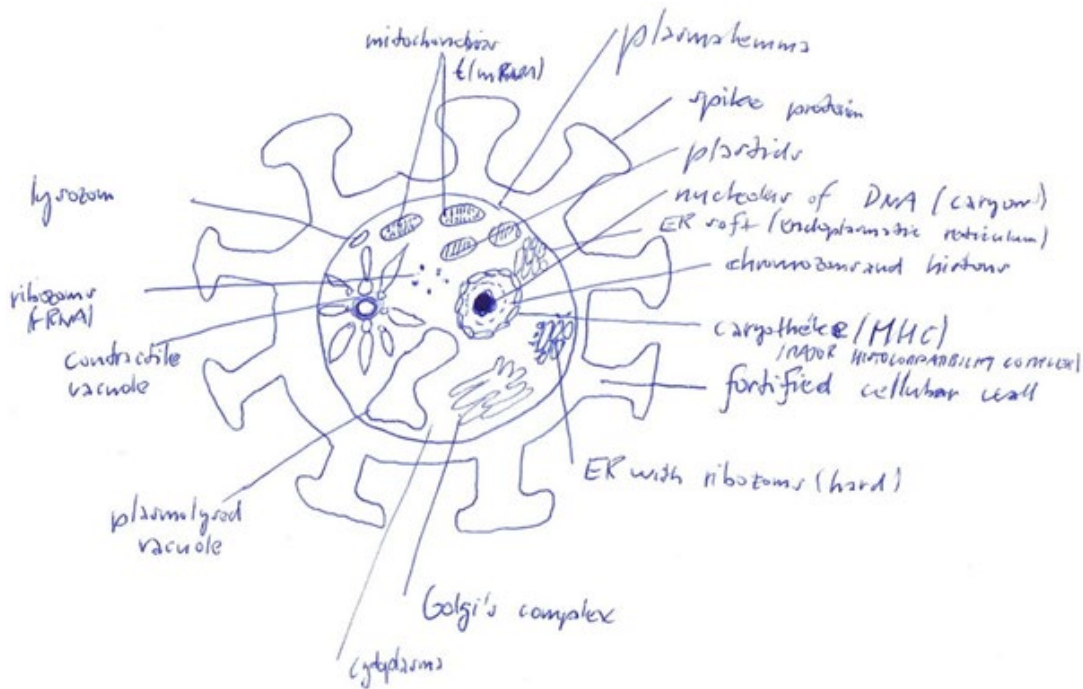 mitochondrias
plasmalemma
spike protein
plastids
nucleolus of DNA (caryon)
ER soft (endoplasmatic reticulum)
chromozoms and histons
caryothéke (MHC)
(MAJOR HISTOCOMPATIBILITY COMPLEX)
fortified cellular wall
ER with ribozoms (hard)
lyzozom
ribozoms
(rRNA)
contractile
vacuole
plasmolysed
vacuole
Golgi's complex
cytoplasma